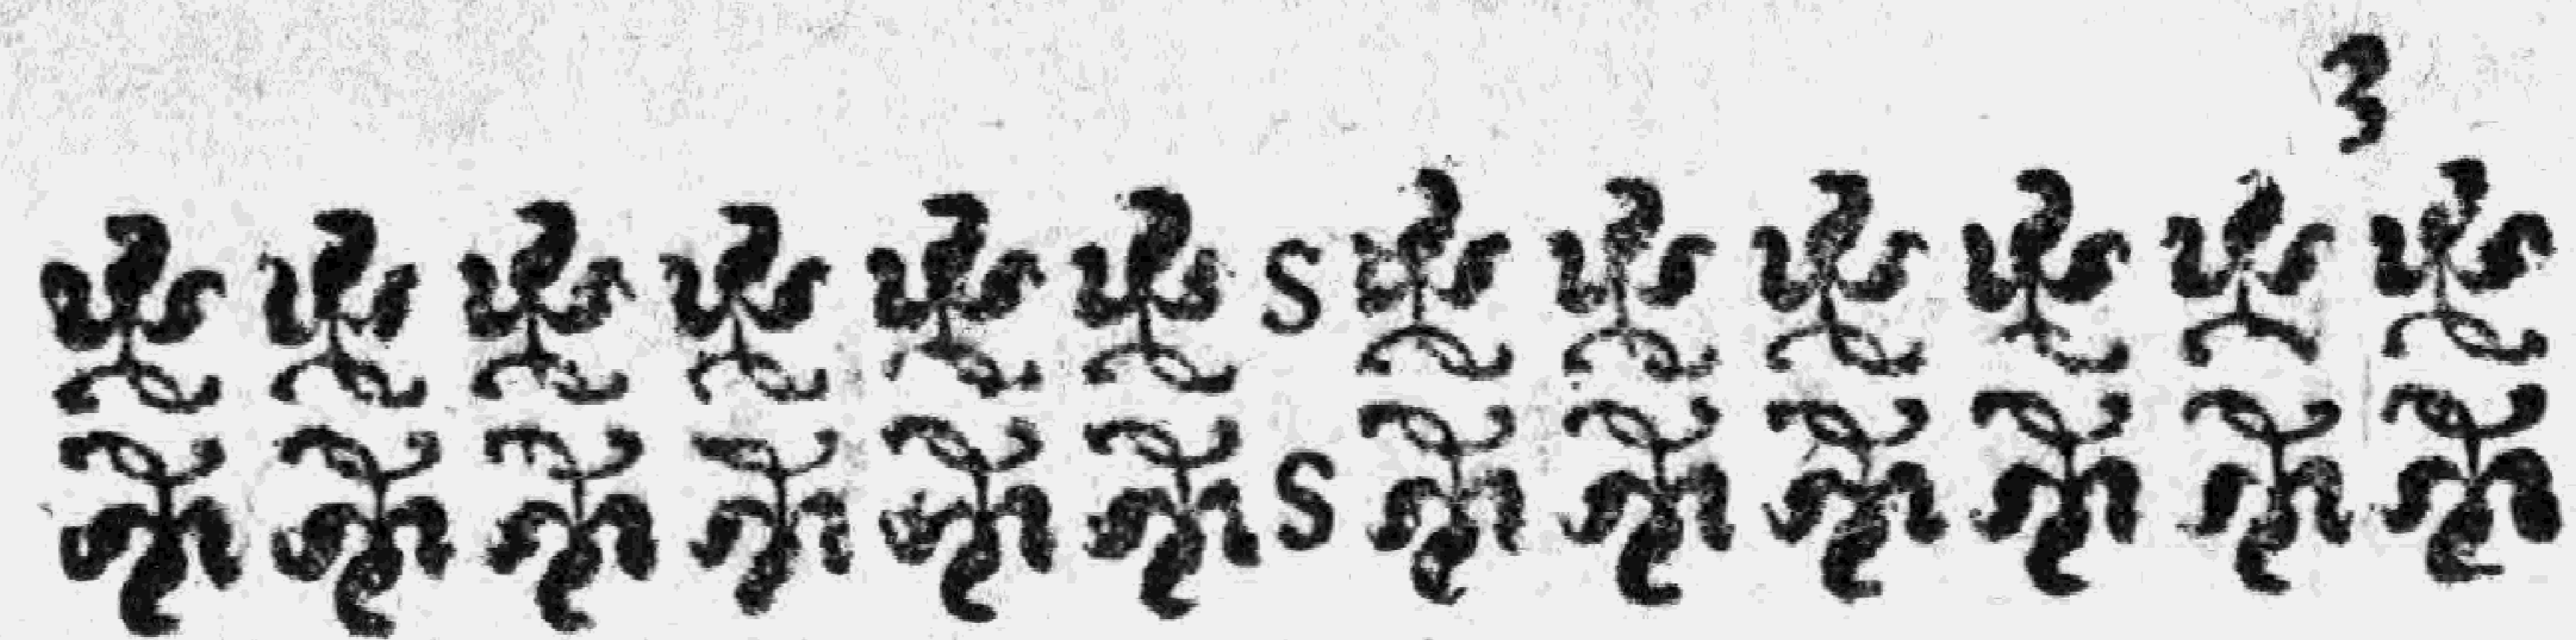 3
S
S